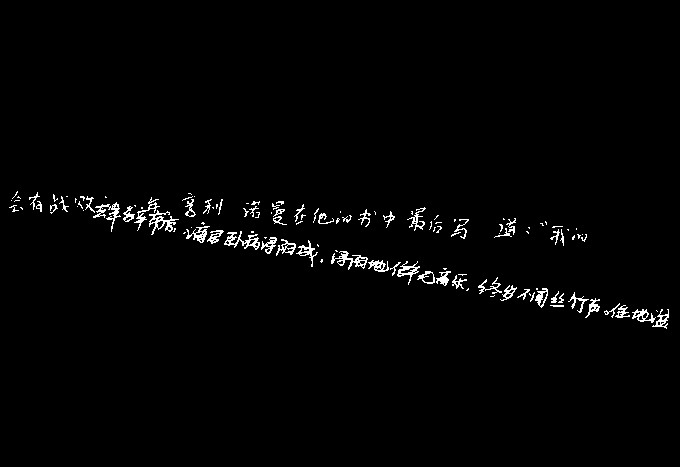 会有战败 年 亨利 诺曼在他的书中最后写 道：“我的
去年辞帝京，谪居卧病浔阳城。浔阳地僻无音乐，终岁不闻丝竹声。住地湓